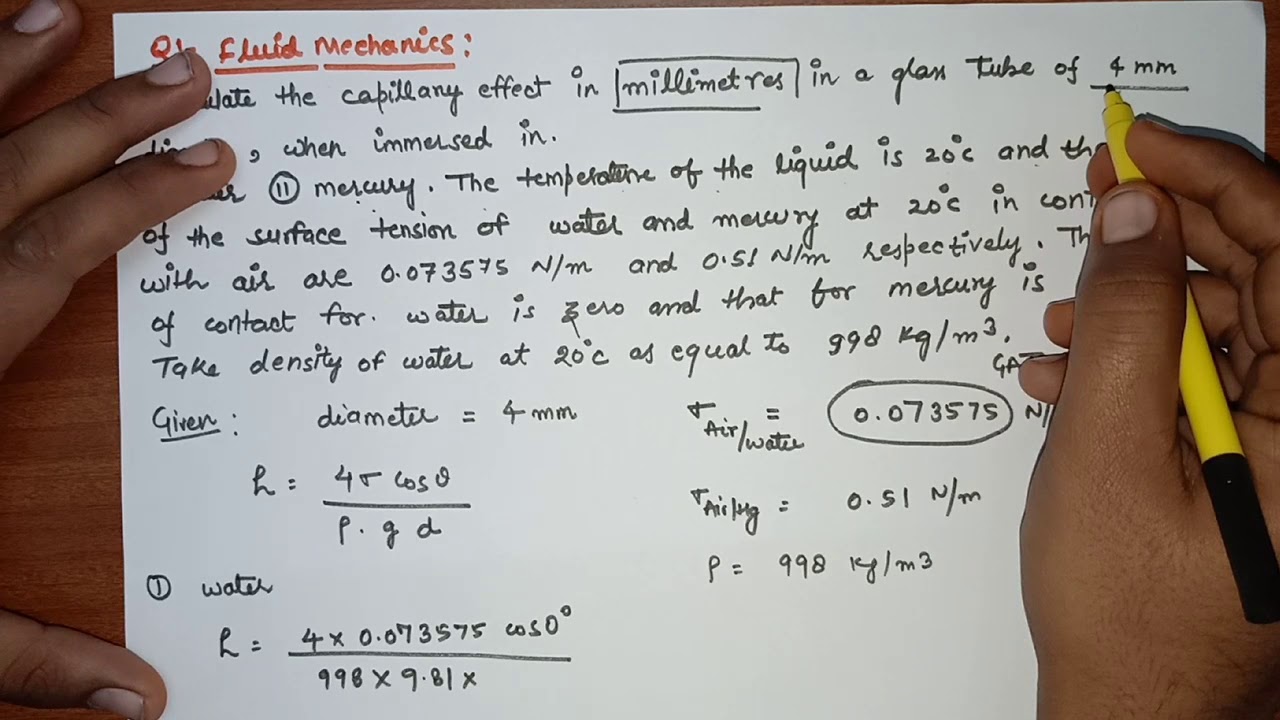 Fluid Mechanics:
the capillary effect in millimetres in a glass tube of 4 mm
, when immersed in.
(II) mercury. The temperature of the liquid is 20°c and
of the surface tension of water and mercury at 20°c in
with air are 0.073575 N/m and 0.51 N/m respectively.
of contact for. water is zero and that for mercury is
Take density of water at 20°c as equal to 998 Kg/m3.
Given: diameter = 4 mm
σ Air/water = 0.073575
h = 4σ cosθ / ρ. g d
σ Air/Hg = 0.51 N/m
ρ = 998 Kg/m3
① water
h = 4 x 0.073575 cos0° / 998 x 9.81 x